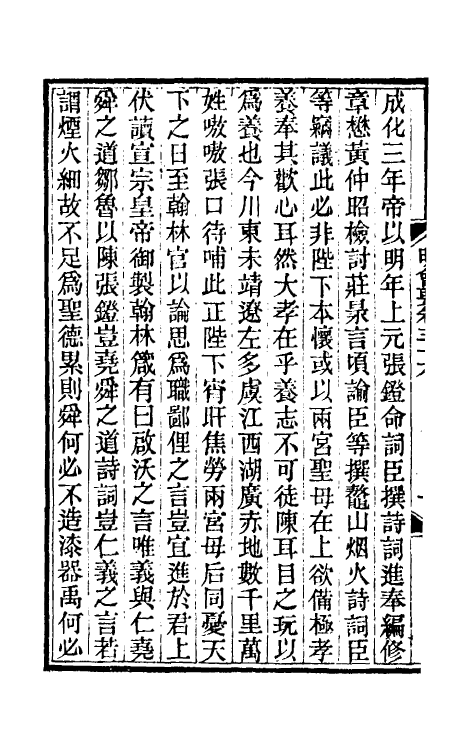 成化三年帝以明年上元張鐙命詞臣撰詩詞進奉編修
章懋黃仲昭檢討莊㫤言頃諭臣等撰鼇山烟火詩詞臣
等竊議此必非陛下本懷或以兩宮聖母在上欲備極孝
養奉其歡心耳然大孝在乎養志不可徒陳耳目之玩以
爲養也今川東未靖遼左多虞江西湖廣赤地數千里萬
姓嗷嗷張口待哺此正陛下宵旰焦勞兩宮母后同憂天
下之日至翰林官以論思爲職鄙俚之言豈宜進於君上
伏讀宣宗皇帝御製翰林箴有曰啟沃之言唯義與仁堯
舜之道鄒魯以陳張鐙豈堯舜之道詩詞豈仁義之言若
謂煙火細故不足爲聖德累則舜何必不造漆器禹何必